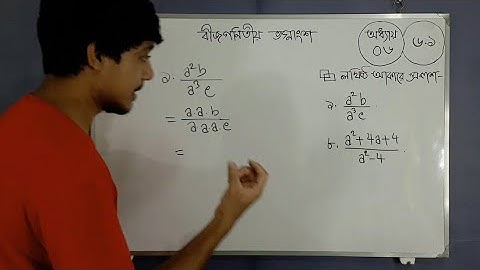 বীজগণিতীয় ভগ্নাংশ
অধ্যায়
০৬
৬.১
১. a²b / a³c
= a.a.b / a.a.a.c
=
লঘিষ্ঠ আকারে প্রকাশ-
১. a²b / a³c .
৮. a²+4a+4 / a²-4 .